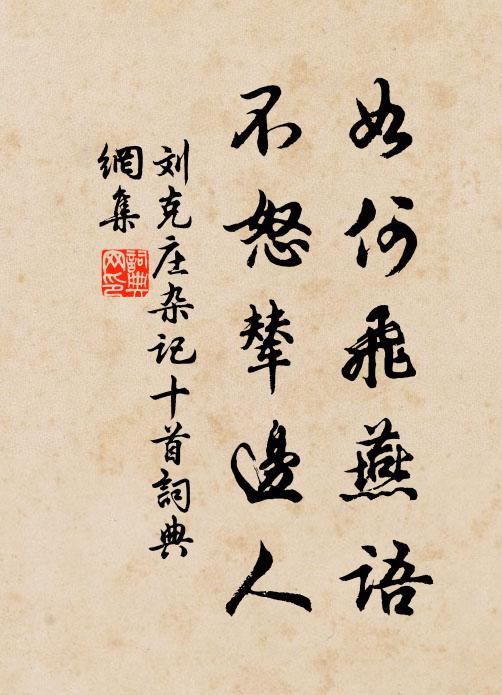 如何飛燕語
不怒輦邊人
刘克庄杂记十首詞典
網集
詞典网印